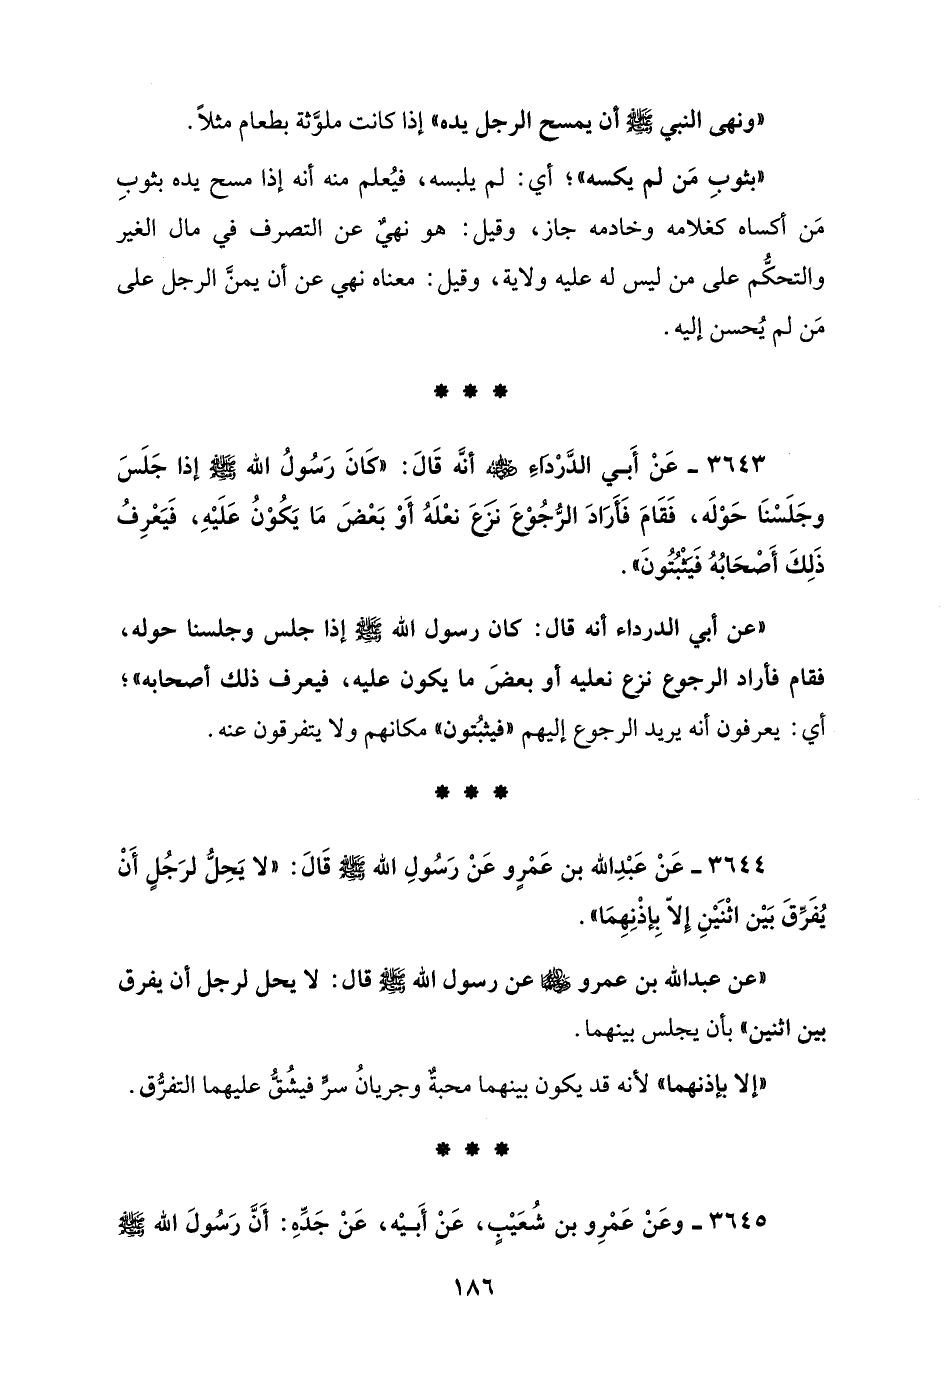 «ونهى النبي ﷺ أن يمسح الرجل يده» إذا كانت ملوَّثة بطعام مثلاً.
«بثوبِ مَن لم يكسه»؛ أي: لم يلبسه، فيُعلم منه أنه إذا مسح يده بثوبِ
مَن أكساه كغلامه وخادمه جاز، وقيل: هو نهيٌ عن التصرف في مال الغير
والتحكُّم على من ليس له عليه ولاية، وقيل: معناه نهي عن أن يمنَّ الرجل على
مَن لم يُحسن إليه.
* * *
٣٦٤٣ ـ عَنْ أَبي الدَّرْدَاءِ ﵁ أنَّه قَالَ: «كَانَ رَسُولُ الله ﷺ إذا جَلَسَ
وجَلَسْنَا حَوْلَه، فَقَامَ فَأَرَادَ الرُّجُوْعَ نَزَعَ نعْلَهُ أَوْ بَعْضَ مَا يَكُوْنُ عَلَيْهِ، فَيَعْرِفُ
ذَلِكَ أَصْحَابُهُ فَيَثْبُتُونَ».
«عن أبي الدرداء أنه قال: كان رسول الله ﷺ إذا جلس وجلسنا حوله،
فقام فأراد الرجوع نزع نعليه أو بعضَ ما يكون عليه، فيعرف ذلك أصحابه»؛
أي: يعرفون أنه يريد الرجوع إليهم «فيثبُتون» مكانهم ولا يتفرقون عنه.
* * *
٣٦٤٤ ـ عَنْ عَبْدِالله بن عَمْرٍو عَنْ رَسُولِ الله ﷺ قَالَ: «لا يَحِلُّ لرَجُلٍ أَنْ
يُفَرِّقَ بَيْن اثْنَيْنِ إلاّ بِإذْنِهِمَا».
«عن عبدالله بن عمرو ﵄ عن رسول الله ﷺ قال: لا يحل لرجل أن يفرق
بين اثنين» بأن يجلس بينهما.
«إلا بإذنهما» لأنه قد يكون بينهما محبةٌ وجريانُ سرٍّ فيشُقُّ عليهما التفرُّق.
* * *
٣٦٤٥ ـ وعَنْ عَمْرِو بن شُعَيْبٍ، عَنْ أَبيْه، عَنْ جَدِّهِ: أَنَّ رَسُولَ الله ﷺ
١٨٦